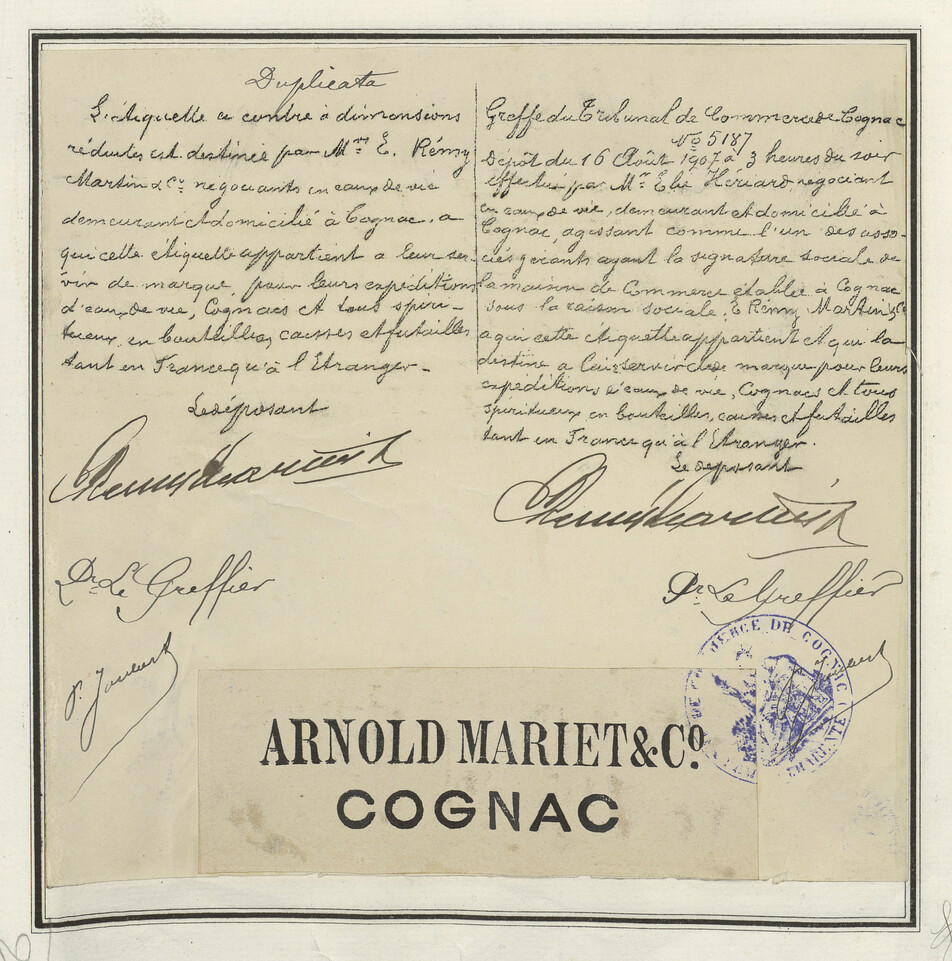 Duplicata
L'étiquette ci contre à dimensions
réduites est destinée par Mrs E. Rémy
Martin & Co négociants en eaux de vie
demeurant et domicilié à Cognac, a
qui cette étiquette appartient a leur ser-
vir de marque, pour leurs expéditions
d'eaux de vie, Cognacs et tous spiri-
tueux, en bouteilles, caisses et futailles
tant en France qu'à l'Etranger.
Le déposant
E Remy Martin & Co
Pr Le Greffier
Greffe du Tribunal de Commerce de Cognac
No 5187
Dépôt du 16 Août 1907 à 3 heures du soir
effectué par Mr Elie Hériard, négociant
en eaux de vie, demeurant et domicilié à
Cognac, agissant comme l'un des asso-
ciés gérants ayant la signature sociale de
la maison de Commerce établie à Cognac
sous la raison sociale, E Rémy Martin & Co
a qui cette étiquette appartient et qui la
destine a lui servir de marque pour leurs
expéditions d'eaux de vie, Cognacs et tous
spiritueux en bouteilles, caisses et futailles
tant en France qu'à l'Etranger.
Le déposant
E Remy Martin & Co
Pr Le Greffier
DE COGNAC
CHARENTE
ARNOLD MARIET & CO.
COGNAC